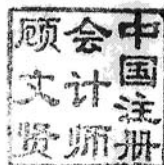 中国注册
会计师
顾文贤